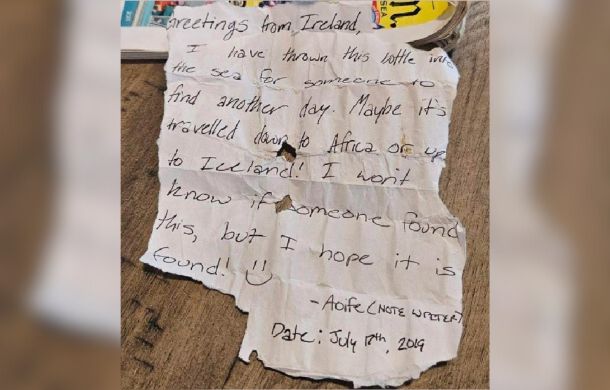 Greetings from Ireland,
I have thrown this bottle into
the sea for someone to
find another day. Maybe it's
travelled down to Africa or up
to Iceland! I won't
know if someone found
this, but I hope it is
found! :)
- Aoife (NOTE WRITER)
Date: July 17th, 2019
SEA